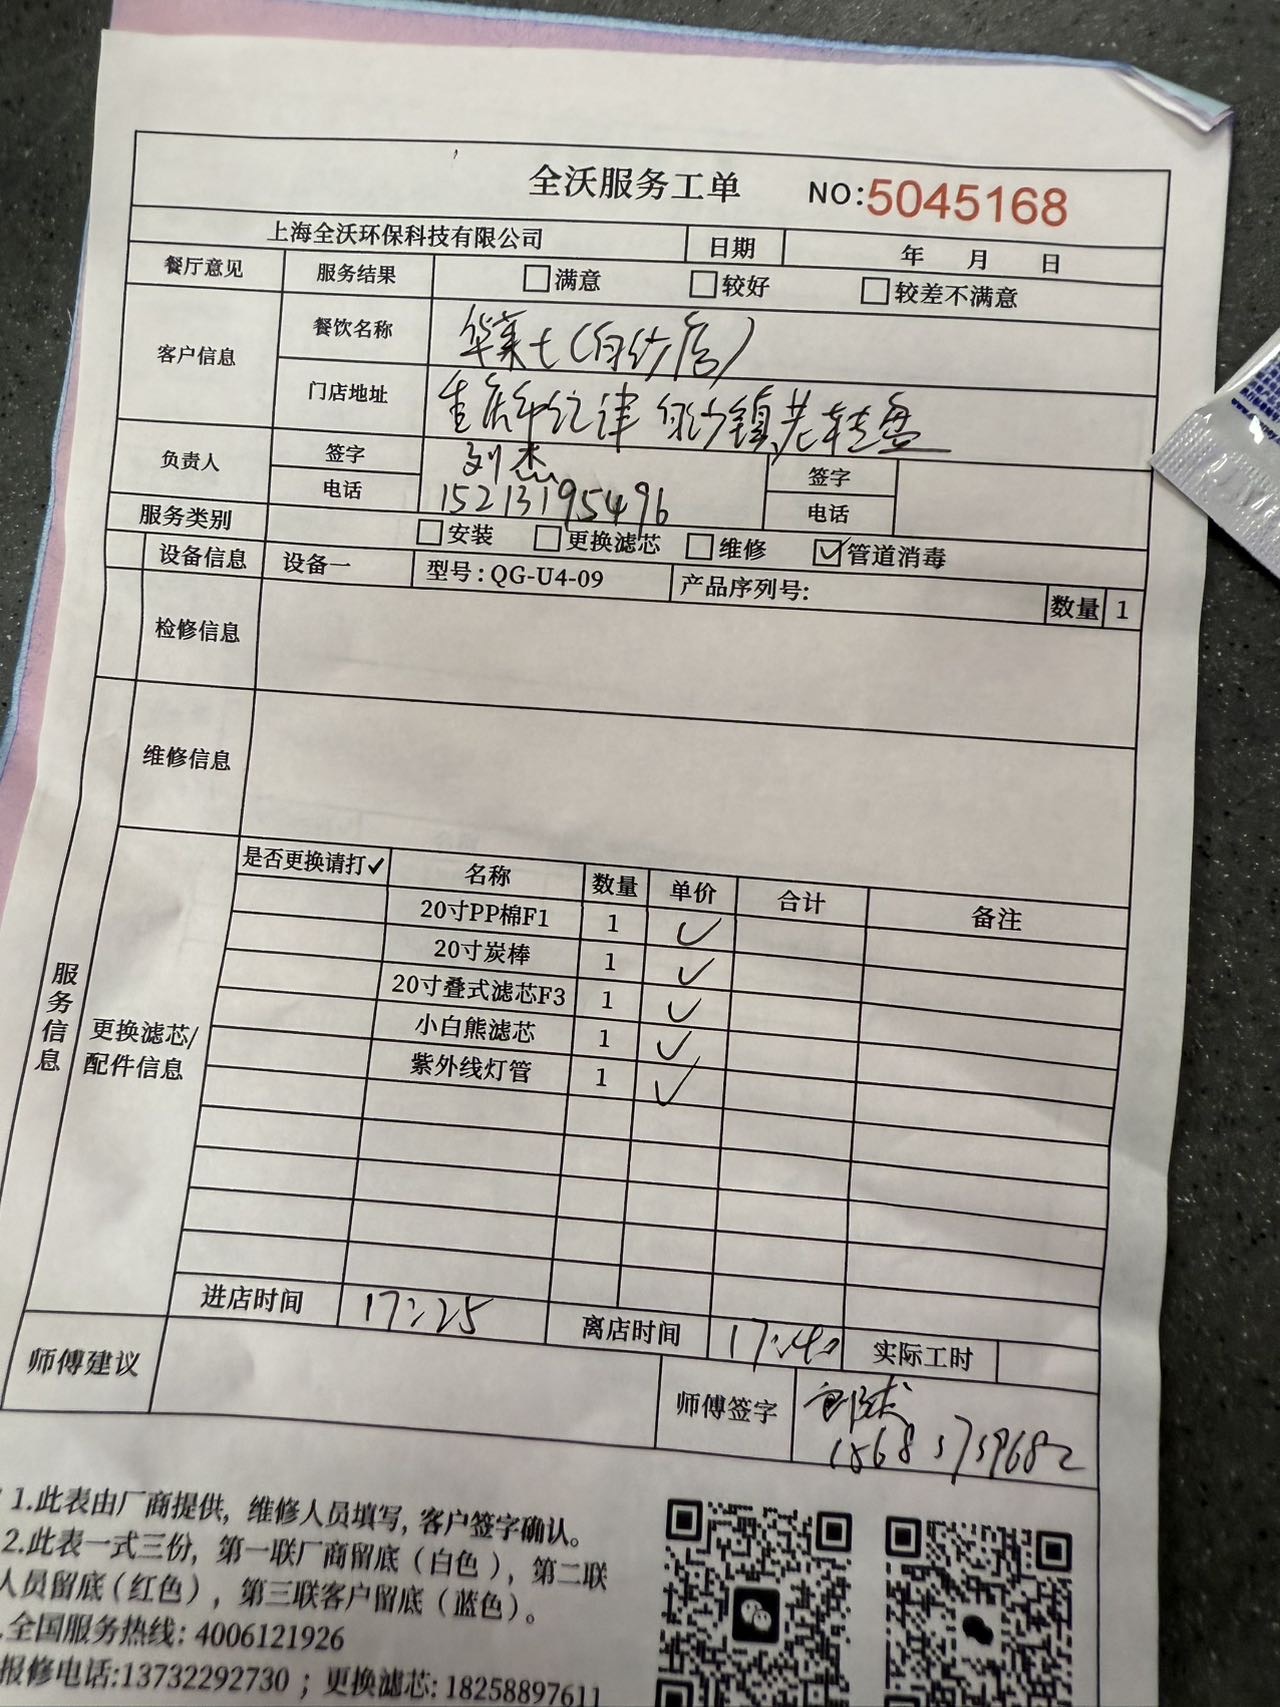 全沃服务工单 NO:5045168
上海全沃环保科技有限公司 日期 年 月 日
餐厅意见 服务结果 满意 较好 较差不满意
客户信息 餐饮名称 华莱士(白沙店)
门店地址 白沙镇老转盘
负责人 签字 刘杰 签字
电话 15213195496 电话
服务类别 安装 更换滤芯 维修 ✓管道消毒
设备信息 设备一 型号:QG-U4-09 产品序列号: 数量 1
检修信息
维修信息
服务信息
更换滤芯/配件信息
是否更换请打✓ 名称 数量 单价 合计 备注
20寸PP棉F1 1 ✓
20寸炭棒 1 ✓
20寸叠式滤芯F3 1 ✓
小白熊滤芯 1 ✓
紫外线灯管 1 ✓
进店时间 17:25 离店时间 17:40 实际工时
师傅建议 师傅签字
1.此表由厂商提供, 维修人员填写, 客户签字确认。
2.此表一式三份, 第一联厂商留底(白色), 第二联
人员留底(红色), 第三联客户留底(蓝色)。
全国服务热线: 4006121926
报修电话:13732292730; 更换滤芯: 18258897611